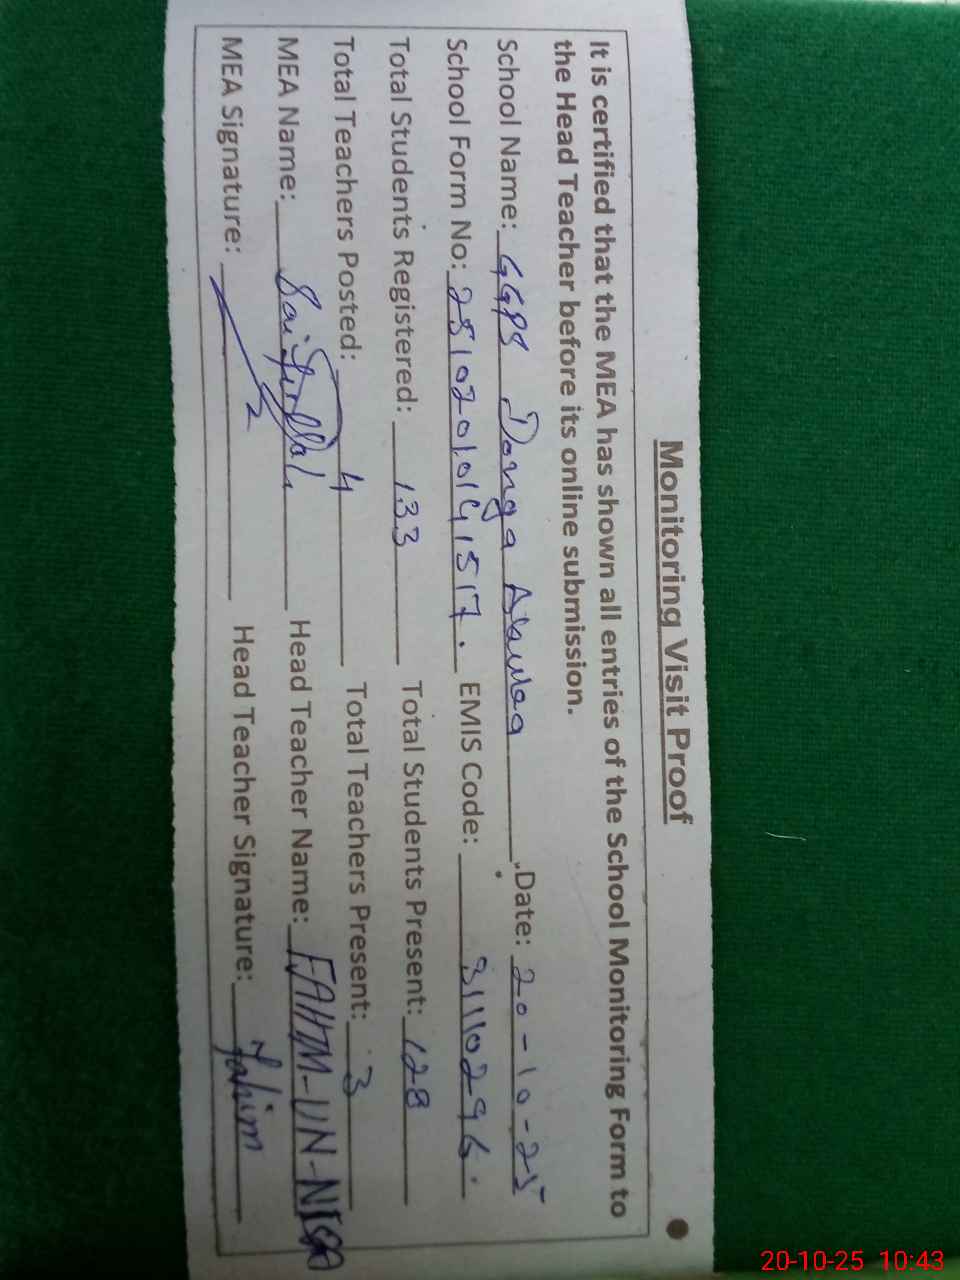 Monitoring Visit Proof
It is certified that the MEA has shown all entries of the School Monitoring Form to
the Head Teacher before its online submission.
School Name: GGPS Donga Date: 20-10-25
School Form No: EMIS Code:
Total Students Registered: 133 Total Students Present: 128
Total Teachers Posted: 4 Total Teachers Present: 3
MEA Name: Saifullah Head Teacher Name: FAHIM-UN-NISA
MEA Signature: Head Teacher Signature: Fahim
20-10-25 10:43